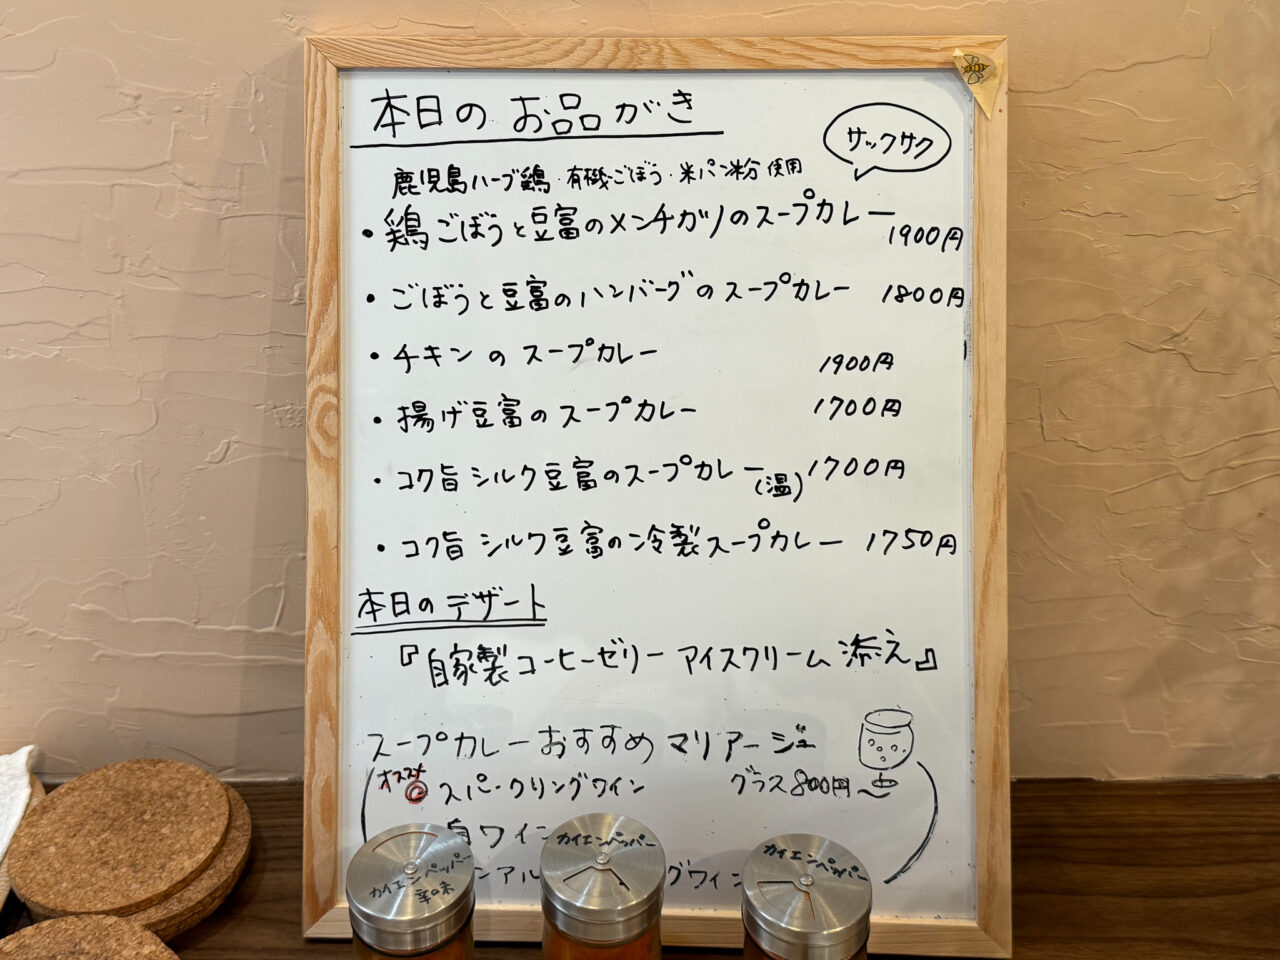 本日の お品がき
サックサク
鹿児島ハーブ鶏・有機ごぼう・米パン粉 使用
・鶏ごぼうと豆富のメンチカツのスープカレー 1900円
・ごぼうと豆富のハンバーグのスープカレー 1800円
・チキンのスープカレー 1900円
・揚げ豆富のスープカレー 1700円
・コク旨シルク豆富のスープカレー(温) 1700円
・コク旨シルク豆富の冷製スープカレー 1750円
本日のデザート
『自家製コーヒーゼリー アイスクリーム添え』
スープカレーおすすめマリアージュ
オススメ◎ スパークリングワイン グラス800円〜
白ワイン
ンアル グワイン
カイエンペッパー 辛味
カイエンペッパー
カイエンペッパー